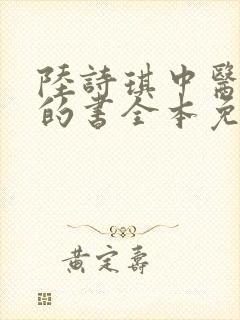 陸詩琪中醫
的書全本免
黃定壽